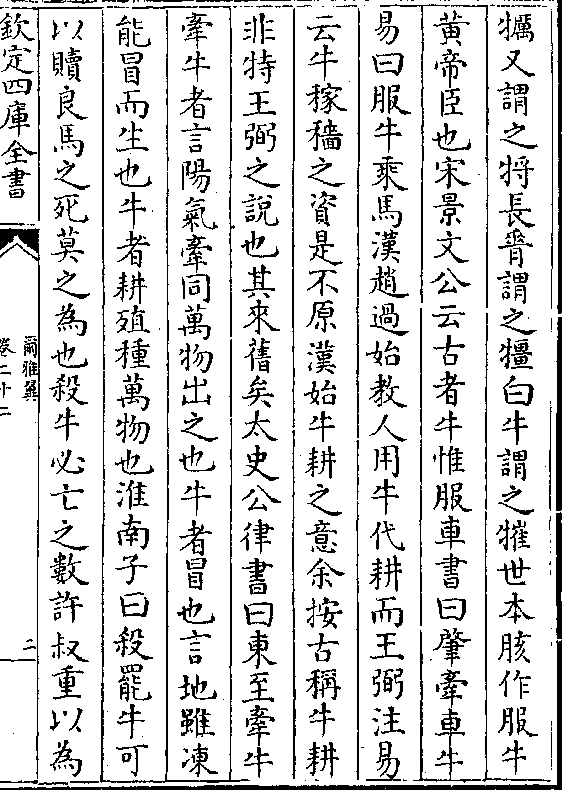 犡又謂之㸶長脊謂之犟白牛謂之㹊世本胲作服牛
黄帝臣也宋景文公云古者牛惟服車書曰肇牽車牛
易曰服牛乘馬漢趙過始教人用牛代耕而王弼注易
云牛稼穡之資是不原漢始牛耕之意余按古稱牛耕
非特王弼之說也其來舊矣太史公律書曰東至牽牛
牽牛者言陽氣牽同萬物出之也牛者冒也言地雖凍
能冒而生也牛者耕殖種萬物也淮南子曰殺罷牛可
以贖良馬之死莫之為也殺牛必亡之數許叔重以為
欽定四庫全書
爾雅翼
卷二十二
二